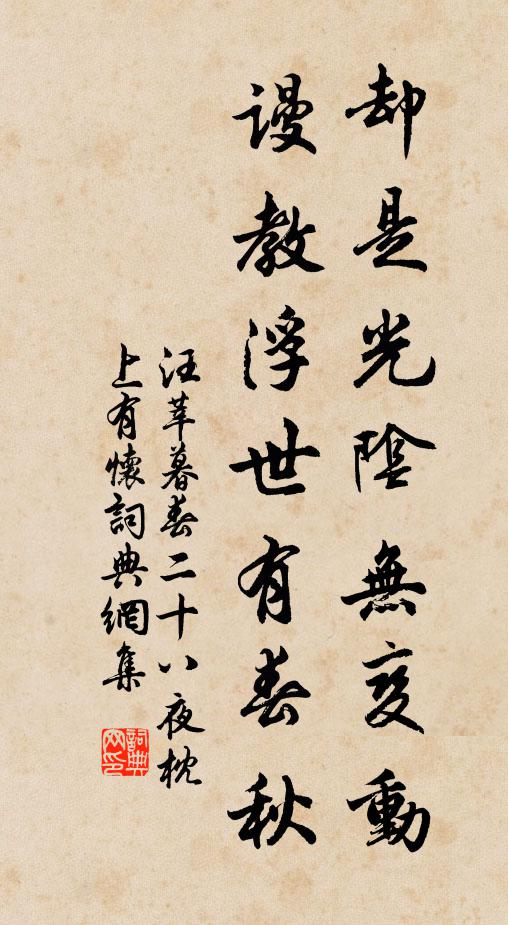 却是光陰無变動
謾教浮世有春秋
汪莘暮春二十八夜枕
上有懷詞典網集
詞典
网印